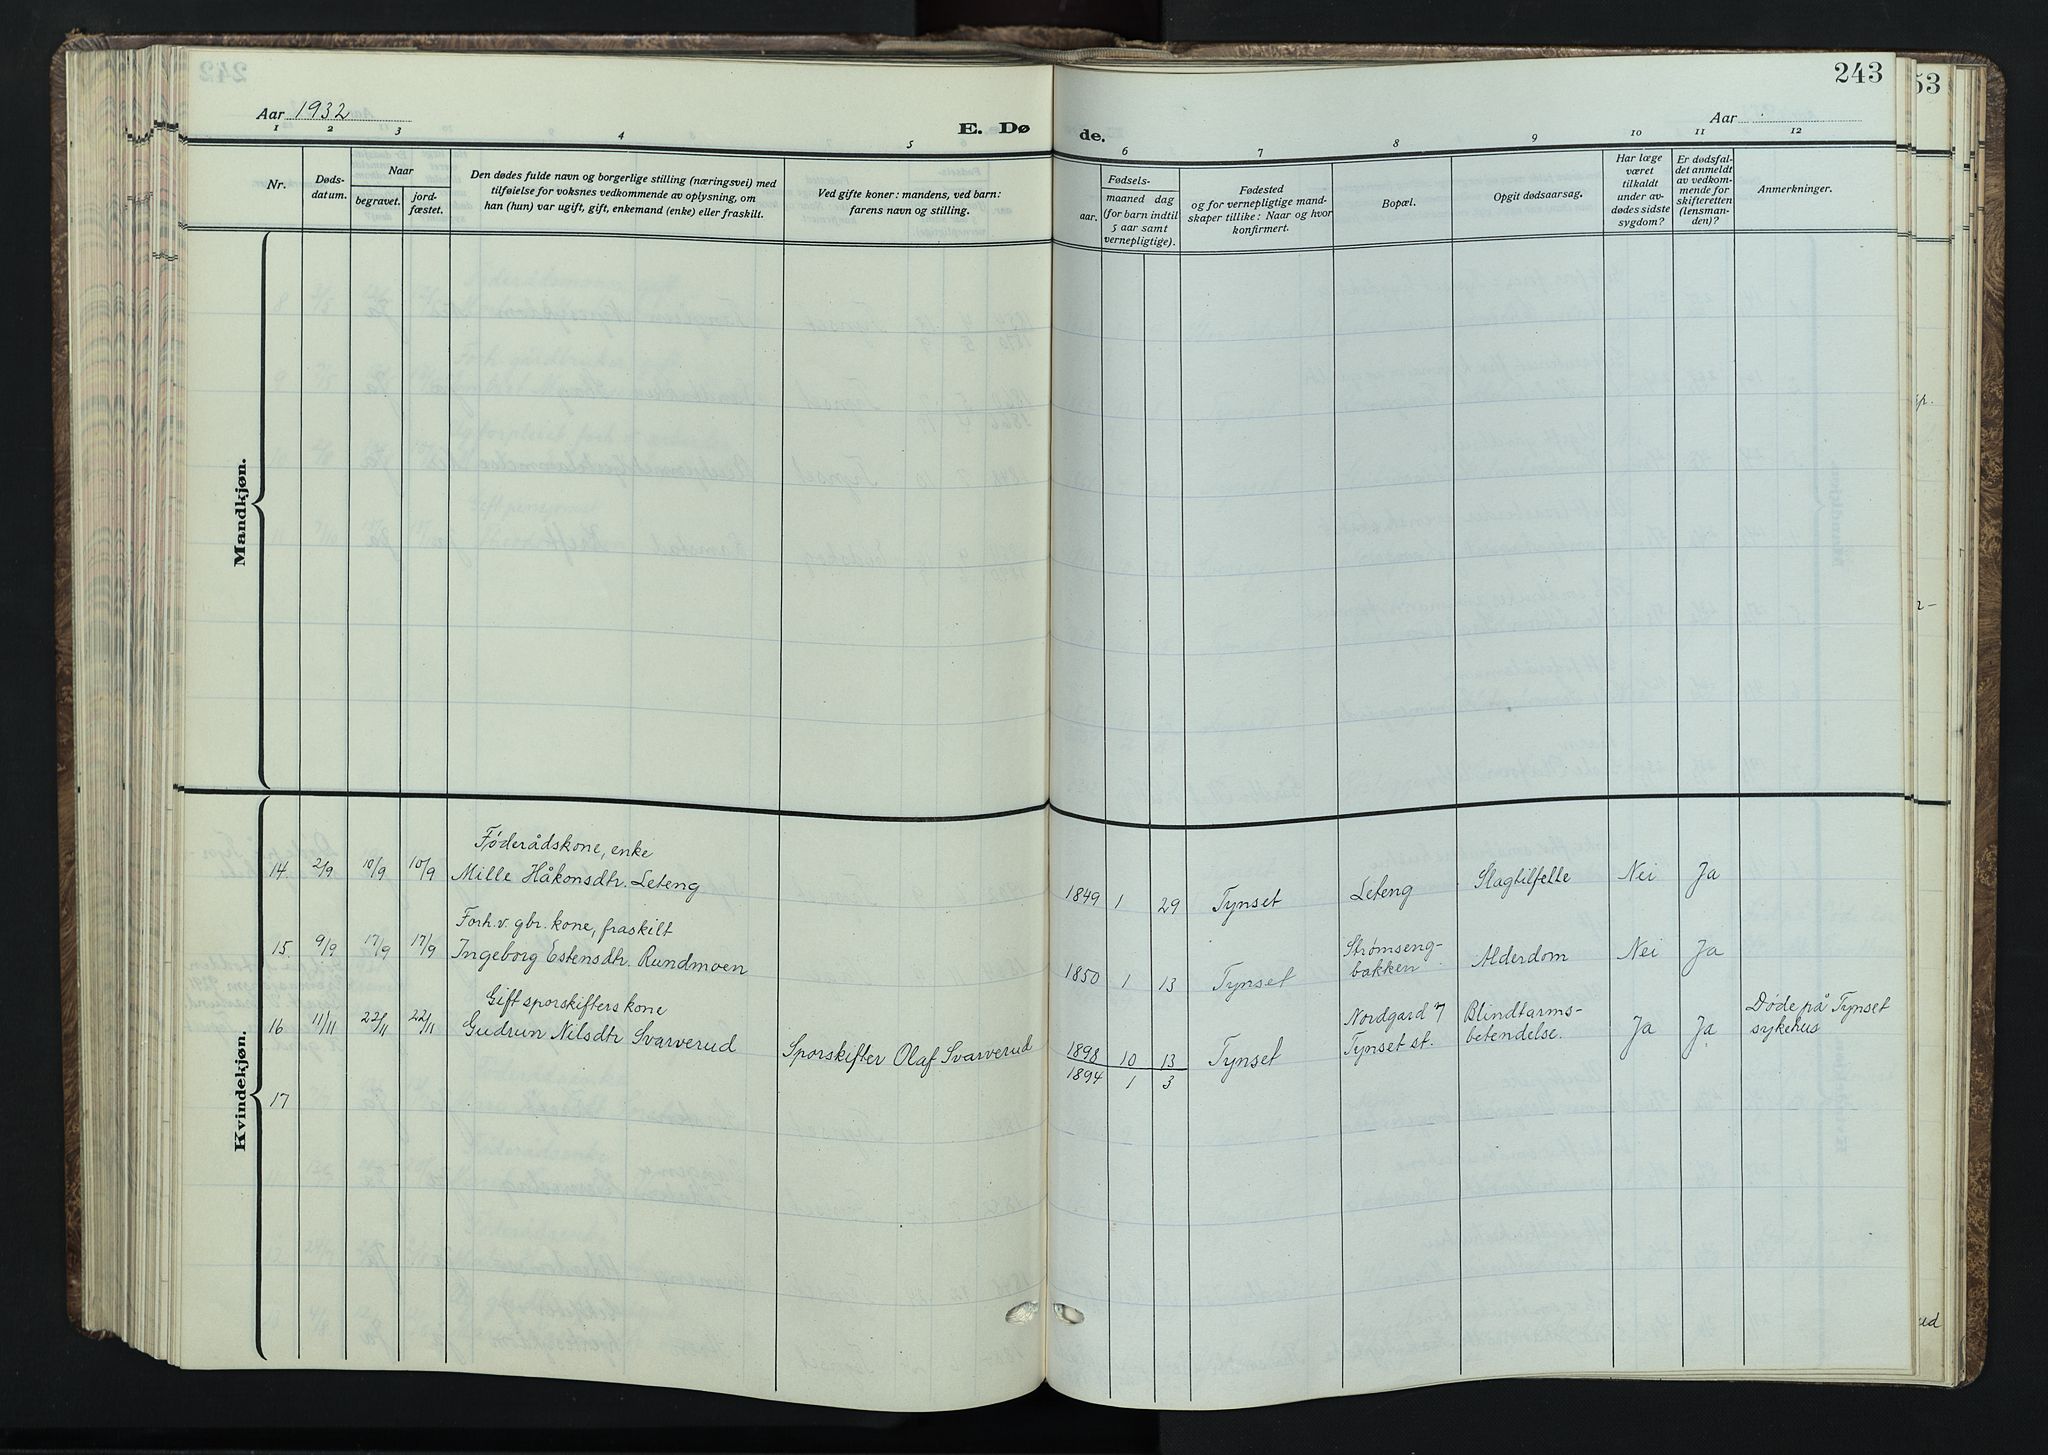 243
53
Aar 1932
E. Dø
de.
Aar
1 2 3 4 5 6 7 8 9 10 11 12
Nr.
Døds-
datum.
Naar
begravet.
jord-
fæstet.
Den dødes fulde navn og borgerlige stilling (næringsvei) med
tilføielse for voksnes vedkommende av oplysning, om
han (hun) var ugift, gift, enkemand (enke) eller fraskilt.
Ved gifte koner: mandens, ved barn:
farens navn og stilling.
Fødsels-
aar.
maaned dag
(for barn indtil
5 aar samt
vernepligtige).
Fødested
og for vernepligtige mand-
skaper tillike: Naar og hvor
konfirmert.
Bopæl.
Opgit dødsaarsag.
Har læge
været
tilkaldt
under av-
dødes sidste
sygdom?
Er dødsfal-
det anmeldt
av vedkom-
mende for
skifteretten
(lensman-
den)?
Anmerkninger.
Mandkjøn.
Kvindekjøn.
Føderådskone, enke
14 2/9 10/9 10/9 Mille Håkonsdtr. Leteng 1849 1 29 Tynset Leteng Slagtilfelle Nei Ja
Forh. v. gbr. kone, fraskilt
15 9/9 17/9 17/9 Ingeborg Estensdtr. Rundmoen 1850 1 13 Tynset Strømseng-
bakken Alderdom Nei Ja
Gift sporskifters kone
16 11/11 22/11 22/11 Gudrun Nilsdtr Svarverud Sporskifter Olaf Svarverud 1898 10 13 Tynset Nordgard 7 Blindtarms- Ja Ja Døde på Tynset
Tynset st. betendelse. sykehus
1894 1 3
17